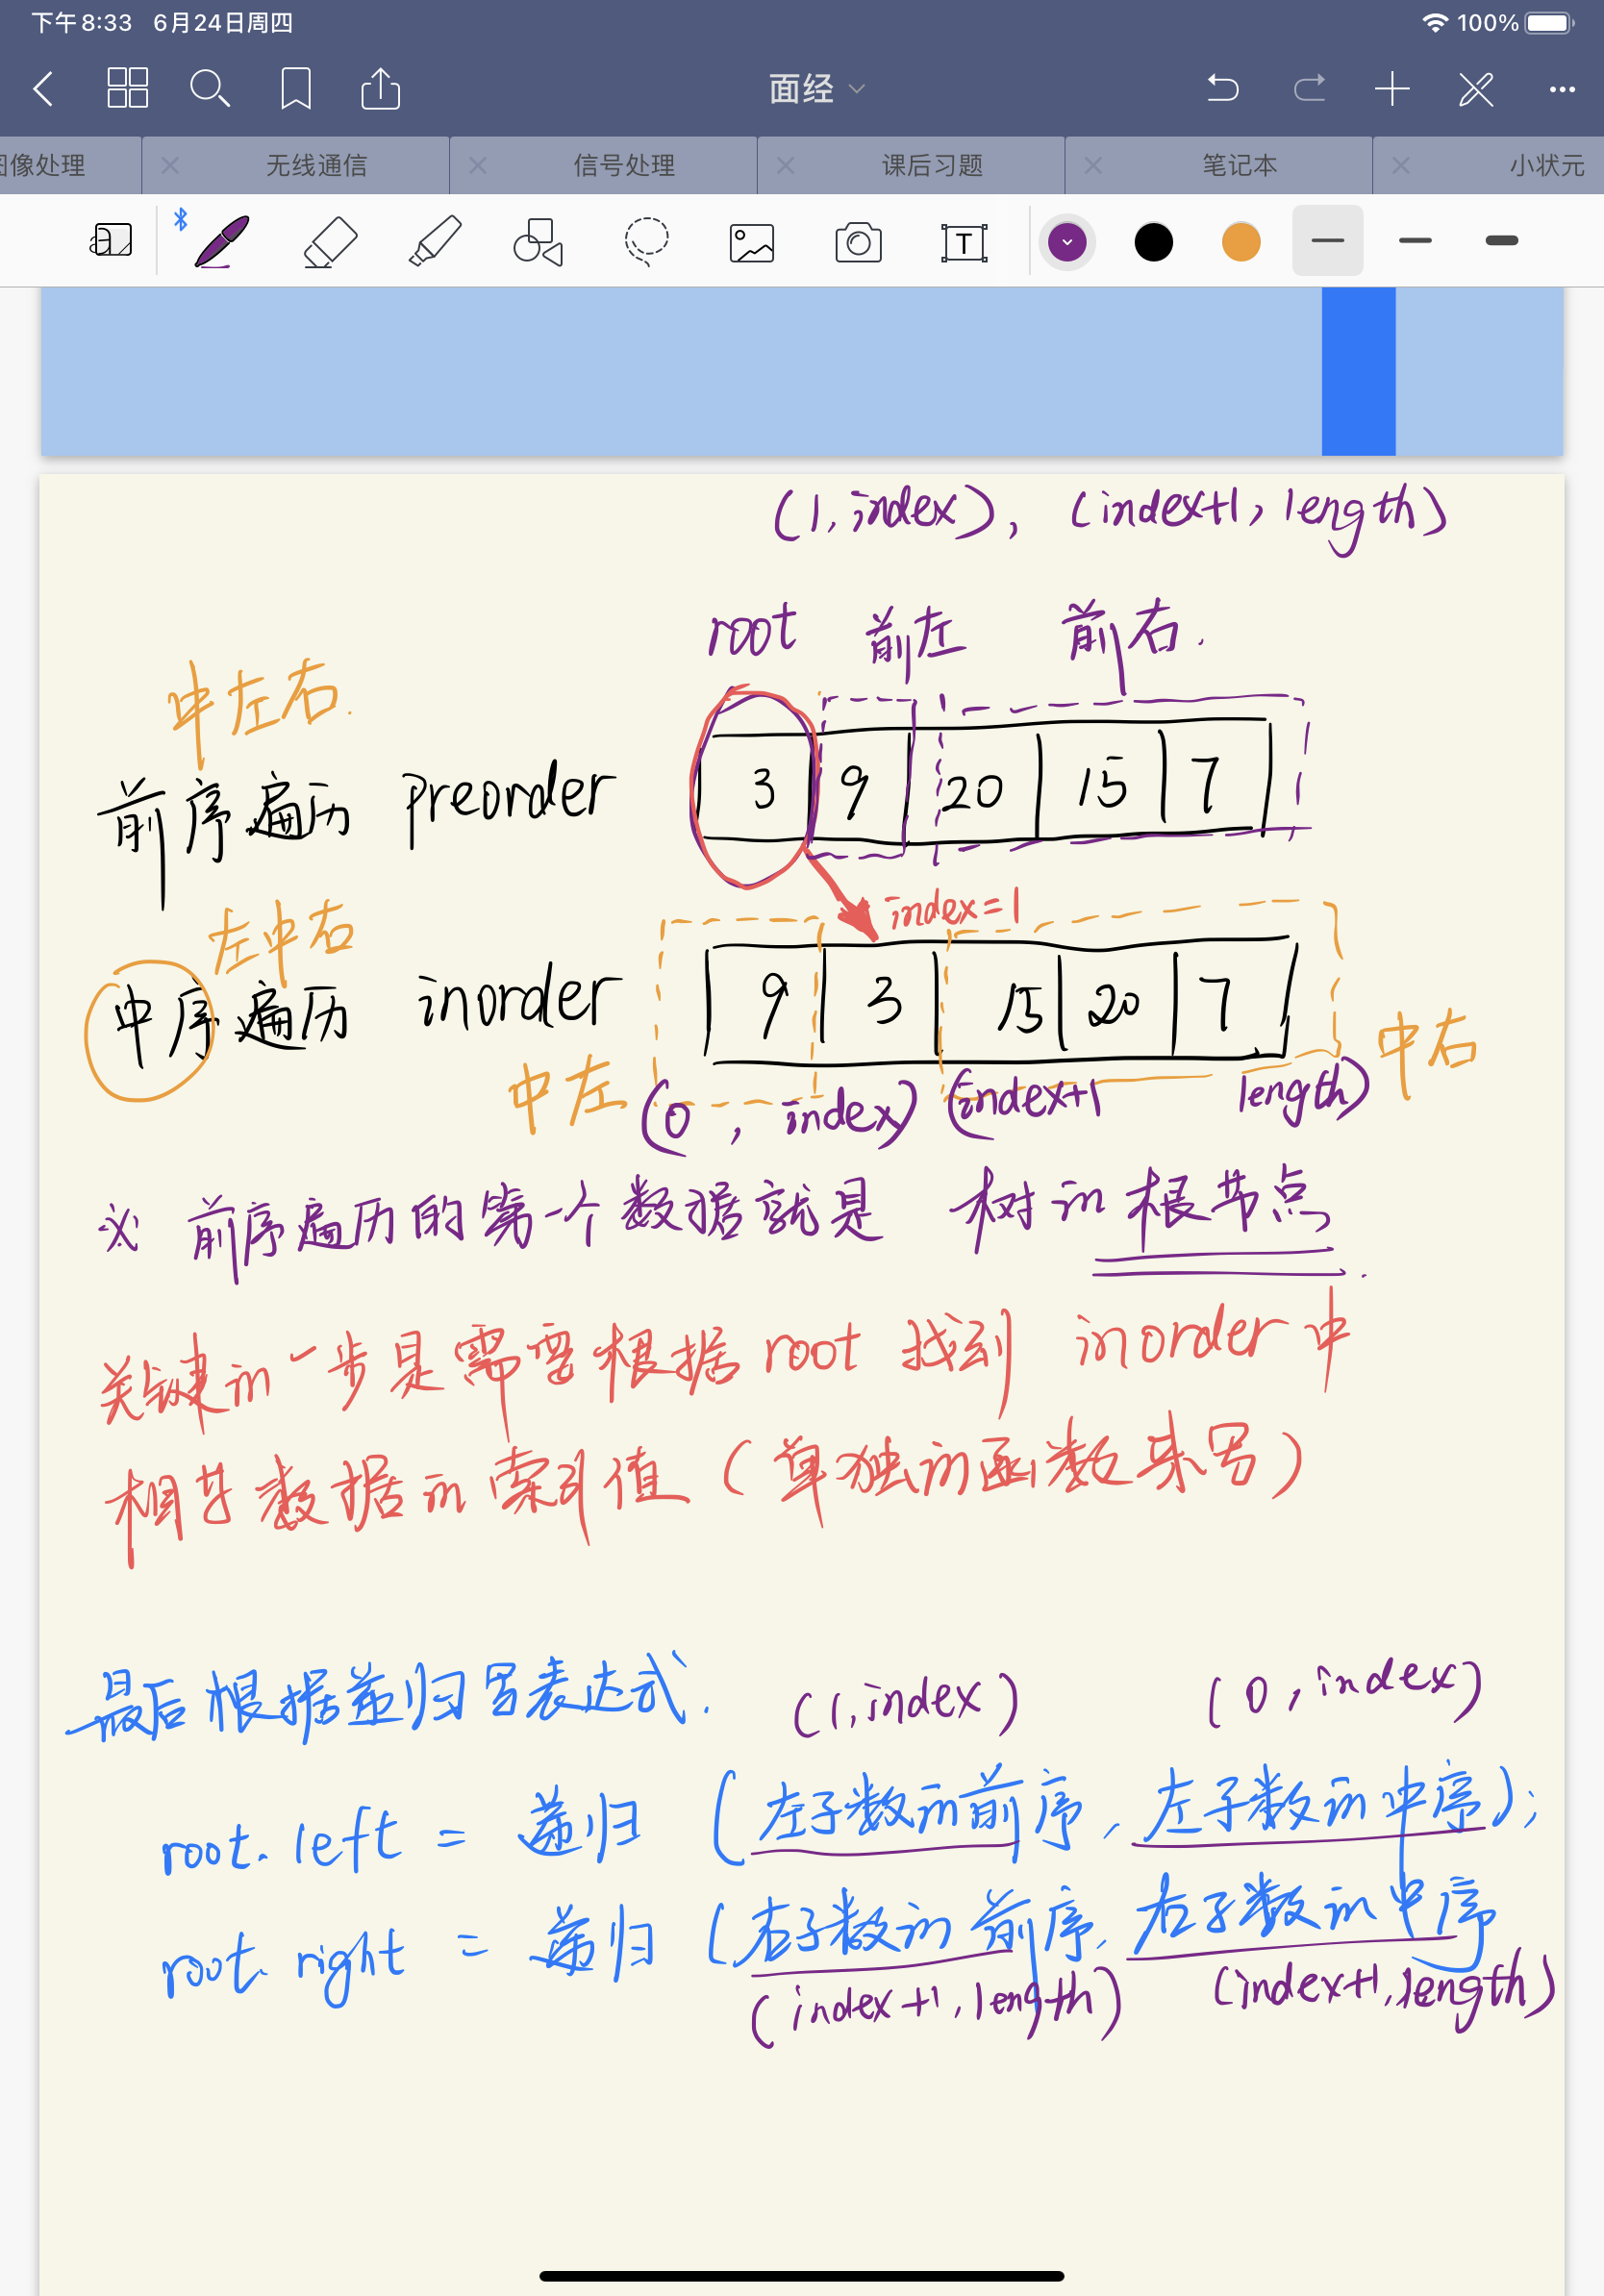 下午8:33 6月24日周四 100%
面经
图像处理 无线通信 信号处理 课后习题 笔记本 小状元
T
(1, index), (index+1, length)
root 前左 前右.
中左右.
前序遍历 preorder 3 9 20 15 7
index=1
左中右
中序遍历 inorder 9 3 15 20 7
中左 (0 , index) (index+1 length) 中右
※ 前序遍历的第一个数据就是 树的根节点.
关键的一步是需要根据 root 找到 inorder 中
相其数据的索引值 (单独的函数来写)
最后根据递归写表达式. (1, index) (0, index)
root.left = 递归 (左子数的前序, 左子数的中序);
root.right = 递归 (右子数的前序, 右子数的中序
(index+1, length) (index+1, length)